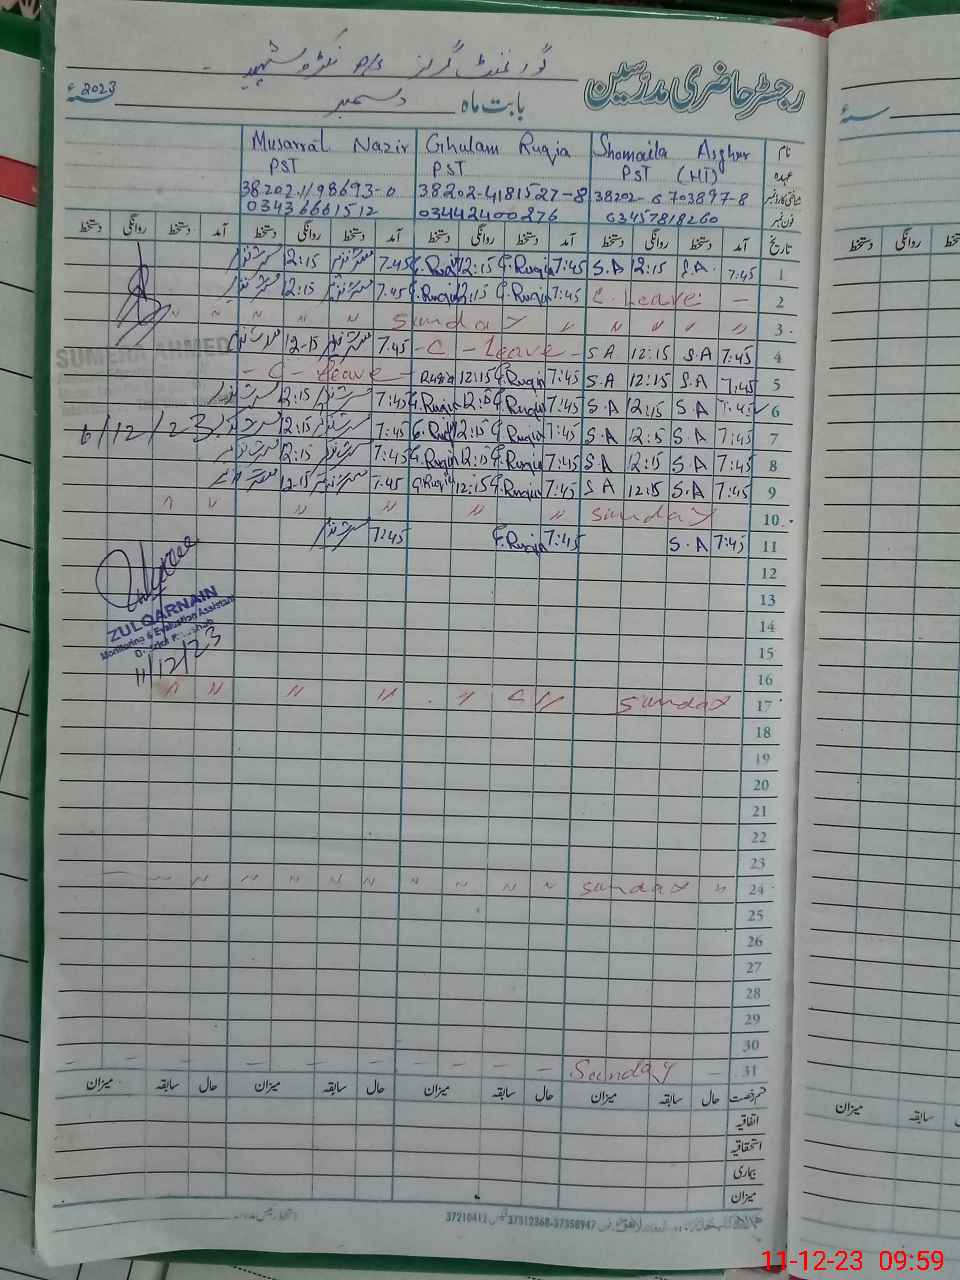 رجسٹر حاضری مدرسین
گورنمنٹ گرلز
بابت ماہ دسمبر 2023ء
نام Shomaila Asghar Ghulam Ruqia Musarrat Nazir
عہدہ PST (HT) PST PST
شناختی کارڈ نمبر 38202-6703897-8 38202-4181527-8 38202-1198693-0
فون نمبر 03457818260 03442400876 03436661512
تاریخ آمد دستخط روانگی دستخط آمد دستخط روانگی دستخط آمد دستخط روانگی دستخط آمد دستخط روانگی دستخط
1 7:45 S.A. 12:15 S.A 7:45 G.Ruqia 12:15 G.Ruqia 7:45 12:15
2 — C. Leave 7:45 G.Ruqia 12:15 G.Ruqia 7:45 12:15
3 〃 〃 〃 〃 〃 Sunday 〃 〃 〃 〃 〃
4 7:45 S.A 12:15 S.A - C - Leave - 7:45 12:15
5 7:45 S.A 12:15 S.A 7:45 G.Ruqia 12:15 Ruqia - C - Leave -
6 7:45 S.A 12:15 S.A 7:45 G.Ruqia 12:15 G.Ruqia 7:45 12:15
7 7:45 S.A 12:15 S.A 7:45 G.Ruqia 12:15 G.Ruqia 7:45 12:15
8 7:45 S.A 12:15 S.A 7:45 G.Ruqia 12:15 G.Ruqia 7:45 12:15
9 7:45 S.A 12:15 S.A 7:45 G.Ruqia 12:15 G.Ruqia 7:45 12:15
10 Sunday 〃 〃 〃 〃 〃 〃
11 7:45 S.A 7:45 G.Ruqia 7:45
12
13
14
15
16
17 Sunday 〃 〃 〃 〃 〃 〃
18
19
20
21
22
23
24 〃 Sunday 〃 〃 〃 〃 〃 〃 〃 〃 〃 〃
25
26
27
28
29
30
31 — Sunday — — — — — — — — —
SUMERA AHMED
6/12/23
ZULQARNAIN
Monitoring & Evaluation Assistant
11/12/23
قسم رخصت حال سابقہ میزان حال سابقہ میزان حال سابقہ میزان حال سابقہ میزان
اتفاقیہ
استحقاقیہ
بیماری
میزان
37312368-37358947 37210412
ء
دستخط روانگی دستخط
میزان سابقہ
11-12-23 09:59